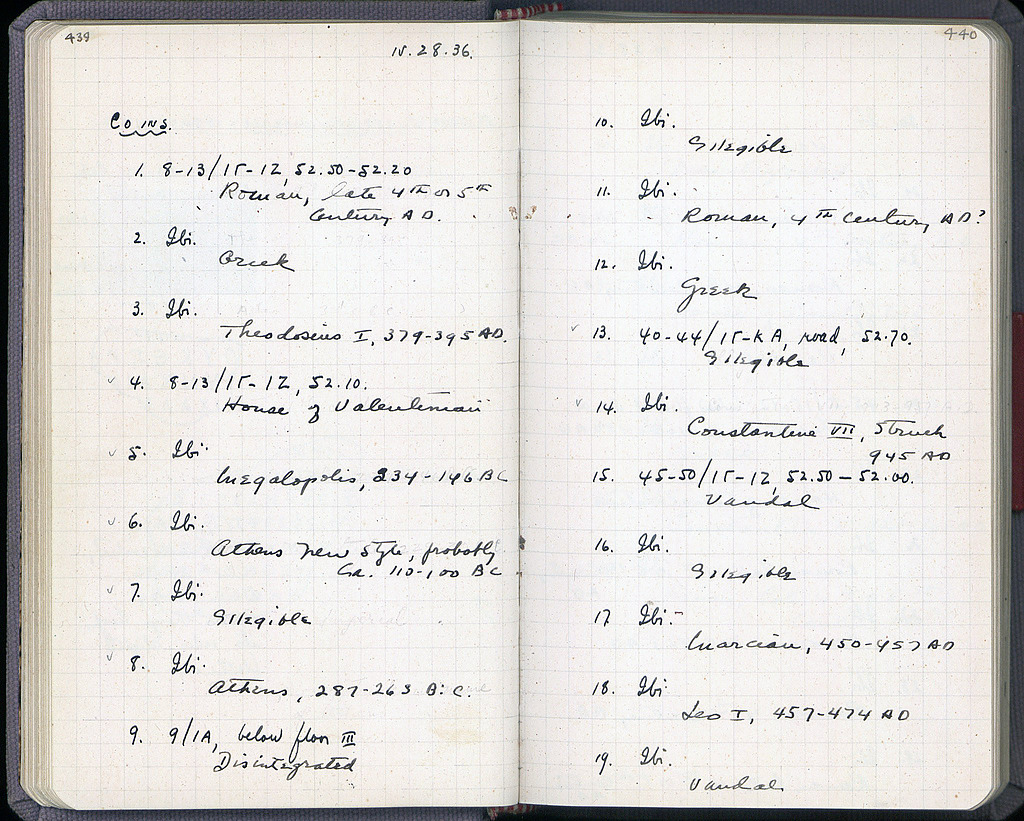 439
IV.28.36.
Coins.
1. 8-13/ΙΓ-ΙΖ, 52.50-52.20
Roman, late 4th or 5th
Century AD.
2. Ibi.
Greek
3. Ibi.
Theodosius I, 379-395 AD.
4. 8-13/ΙΓ-ΙΖ, 52.10.
House of Valentinian
5. Ibi.
Megalopolis, 234-146 BC
6. Ibi.
Athens New Style, probably
Ca. 110-100 BC
7. Ibi.
Illegible
8. Ibi.
Athens, 287-263 B.C.
9. 9/ΙΑ, below floor III
Disintegrated
440
10. Ibi.
Illegible
11. Ibi.
Roman, 4th Century AD?
12. Ibi.
Greek
13. 40-44/ΙΓ-ΚΑ, road, 52.70.
Illegible
14. Ibi.
Constantine VII, Struck
945 AD
15. 45-50/ΙΓ-ΙΖ, 52.50-52.00.
Vandal
16. Ibi.
Illegible
17 Ibi.
Marcian, 450-457 AD
18. Ibi
Leo I, 457-474 AD
19. Ibi.
Vandal